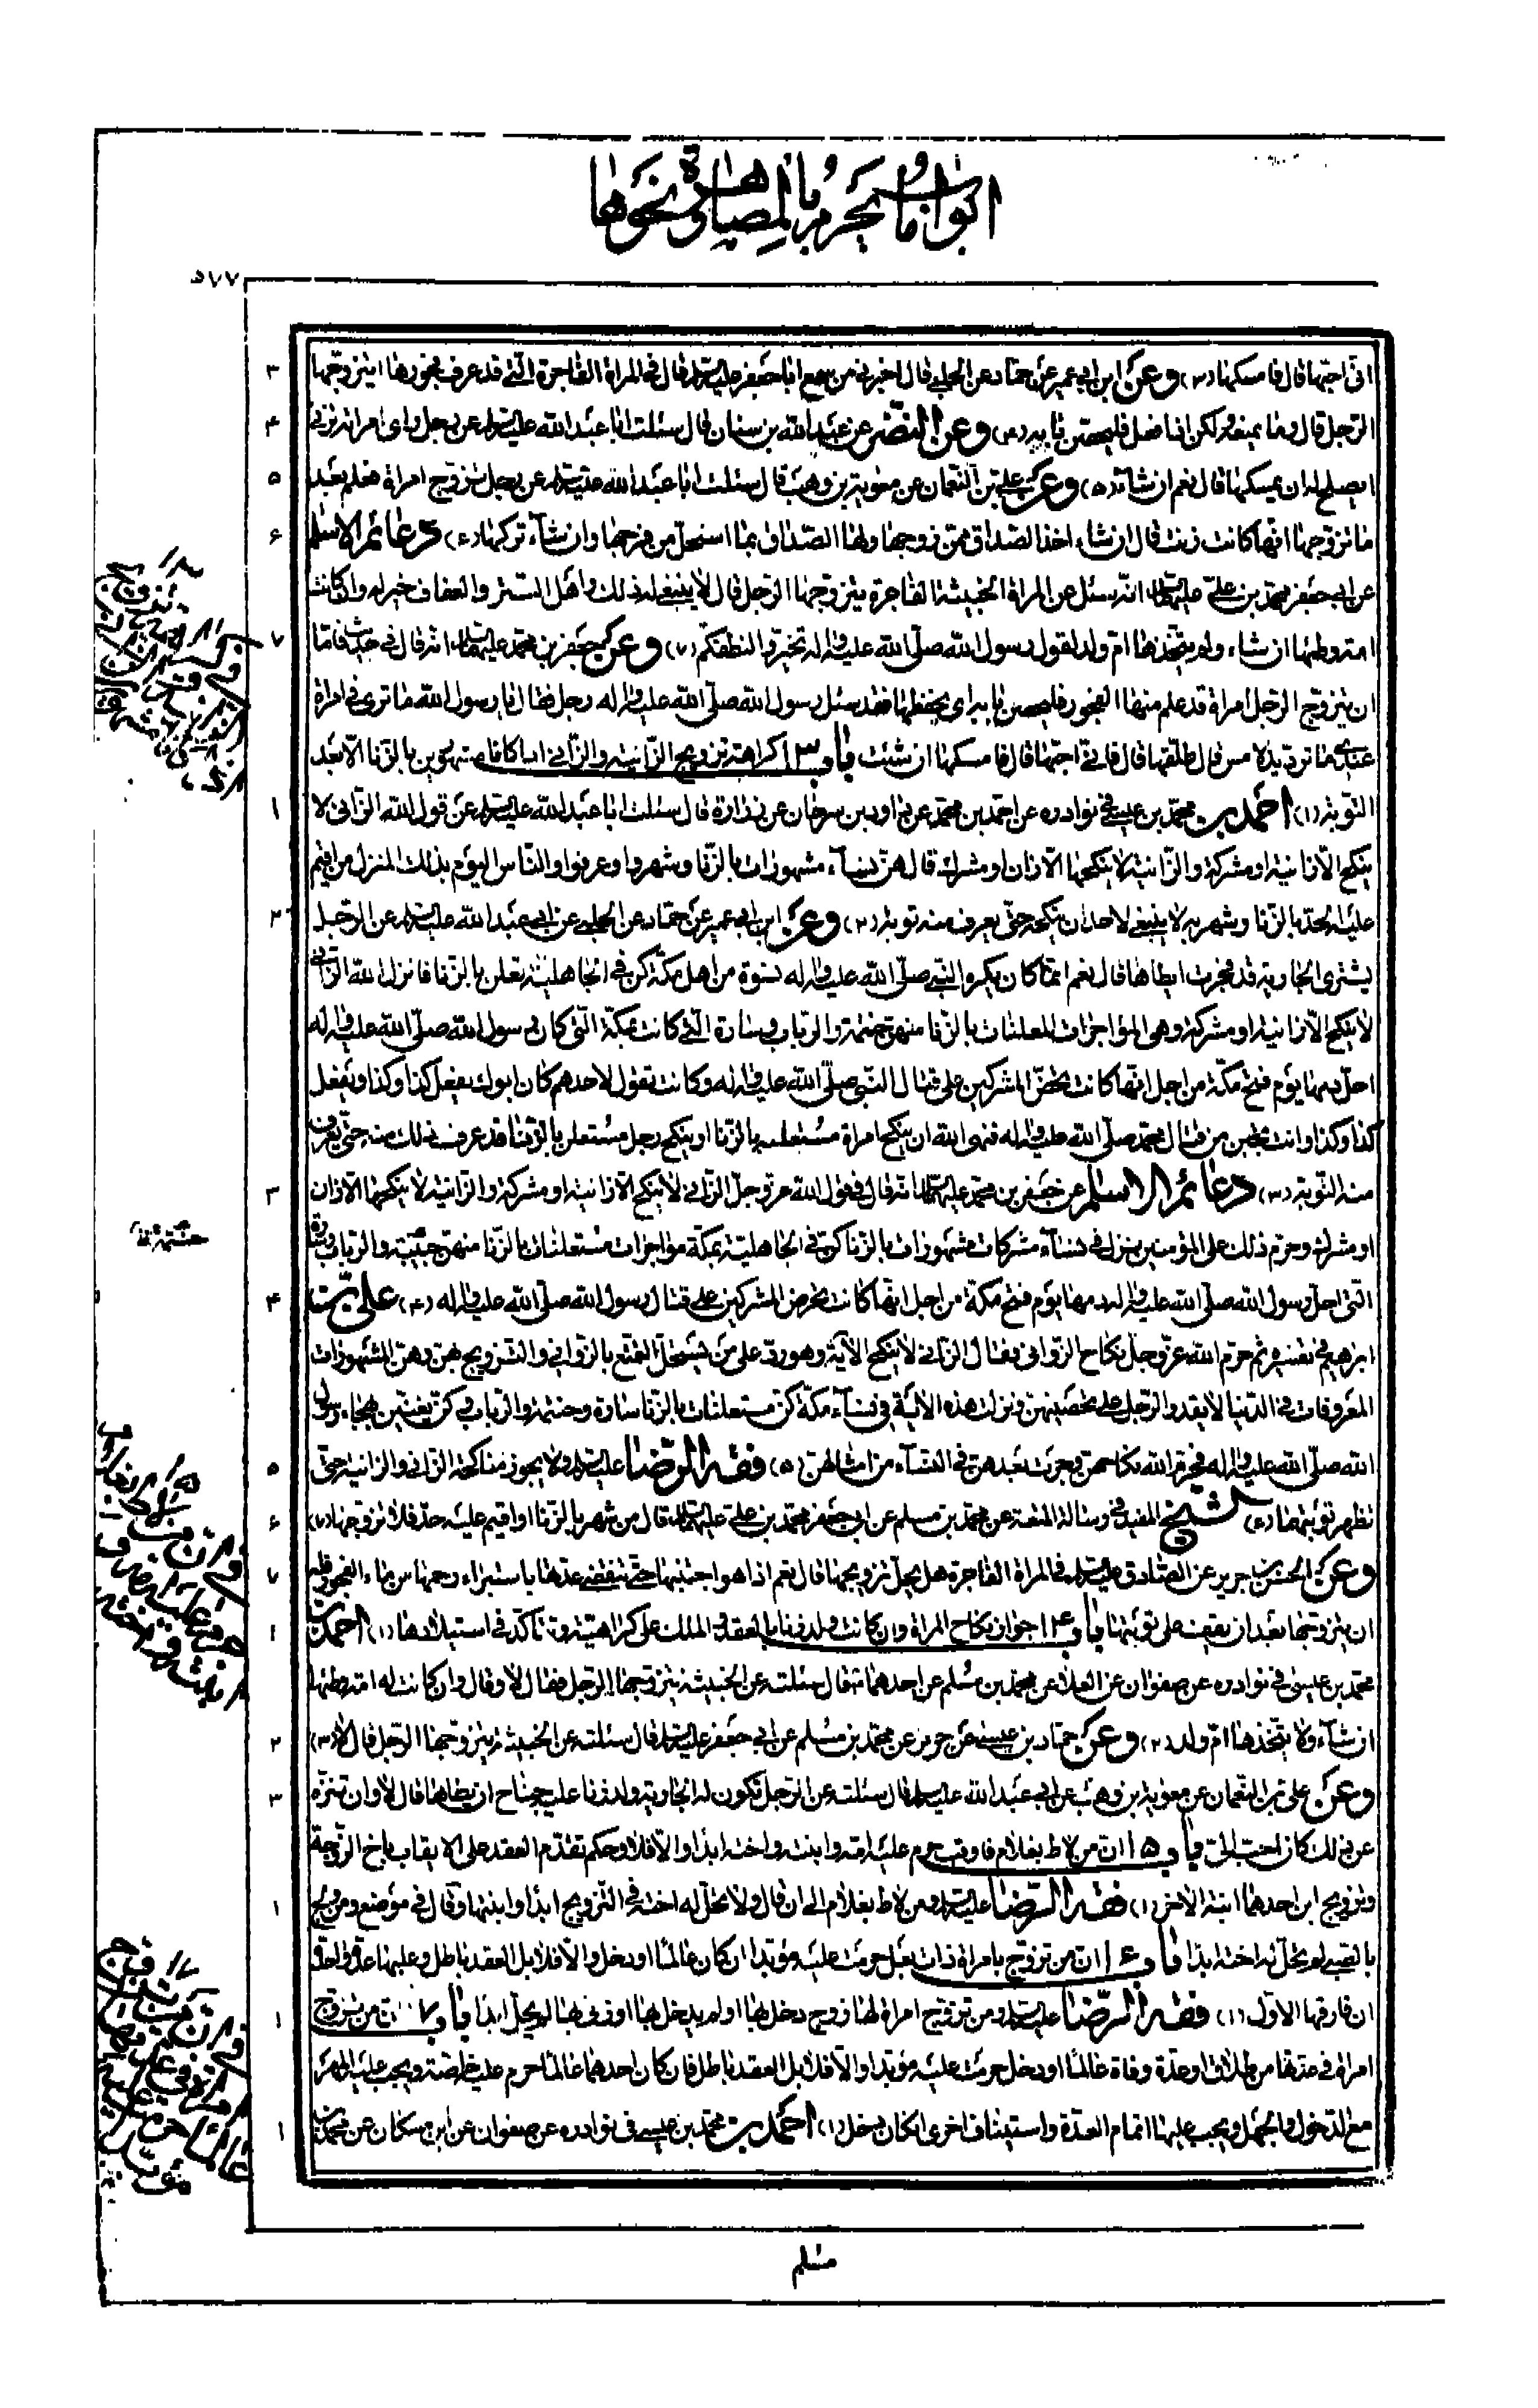 ابواب ما يحرم بالمصاهرة ونحوها
٥٧٧
انى احبّها قال فامسكها (٣) وعن ابن ابى عمير عن حمّاد عن الحلبى قال اخبرنى من سمع ابا جعفر عليه السلام قال فى المراة الفاجرة التى قد عرف فجورها ايتزوّجها
٣
الرّجل قال وما يمنعه ولكن اذا فعل فليحصن بابه (٤) وعن النّضر عن عبد الله بن سنان قال سئلت ابا عبد الله عليه السلام عن رجل راى امراته تزنى
٤
ايصلح له ان يمسكها قال نعم ان شآء (٥) وعن علىّ بن النّعمان عن معوية بن وهب قال سئلت ابا عبد الله عليه السلام عن رجل تزوّج امراة فعلم بعد
٥
ما تزوّجها انّها كانت زنت قال ان شاء اخذ الصّداق ممّن زوجها ولها الصّداق بما استحلّ من فرجها وان شآء تركها (٦) دعائم الاسلام
٦
عن ابى جعفر محمّد بن علىّ عليهما السلام انّه سئل عن المراة الخبيثة الفاجرة يتزوّجها الرّجل قال لا ينبغى له ذلك واهل السّتر والعفاف خير له وان كانت
امة وطئها ان شاء ولم يتّخذها امّ ولد لقول رسول الله صلّى الله عليه واله تخيّروا لنطفكم (٧) وعن جعفر بن محمّد عليهما السلام انّه قال فى حديث فامّا
٧
ان يتزوّج الرّجل امراة قد علم منها الفجور فليحصن بابه اى يحفظها فقد سئل رسول الله صلّى الله عليه واله رجل فقال يا رسول الله ما ترى فى امراة
عندى ما تردّ يد لامس قال طلّقها قال فانّى احبّها قال فامسكها ان شئت باب ١٣ كراهة تزويج الزّانية والزّانى اذا كانا مشهورين بالزّنا الّا بعد
التّوبة (١) احمد بن محمّد بن عيسى فى نوادره عن احمد بن محمّد عن داود بن سرحان عن زرارة قال سئلت ابا عبد الله عليه السلام عن قول الله الزّانى لا
١
ينكح الّا زانية او مشركة والزّانية لا ينكحها الّا زان او مشرك قال هنّ نسآء مشهورات بالزّنا وشهروا وعرفوا والنّاس اليوم بذلك المنزل من اقيم
عليه الحدّ بالزّنا وشهر به لا ينبغى لاحد ان ينكحه حتّى يعرف منه توبة (٢) وعن ابن ابى عمير عن حمّاد عن الحلبى عن ابى عبد الله عليه السلام عن الرّجل
٢
يشترى الجارية قد فجرت ايطاها قال نعم انّما كان يكره النّبىّ صلّى الله عليه واله نسوة من اهل مكّة كنّ فى الجاهليّة يعلنّ بالزّنا فانزل الله الزّانى
لا ينكح الّا زانية او مشركة وهى المؤاجرات المعلنات بالزّنا منهنّ حنتمة والرّباب وسارة الّتى كانت بمكّة الّتى كان رسول الله صلّى الله عليه واله
احلّ دمها يوم فتح مكّة من اجل انّها كانت تحضّ المشركين على قتال النّبى صلّى الله عليه واله وكانت تقول لاحدهم كان ابوك يفعل كذا وكذا ويفعل
كذا وكذا وانت تجبن من قتال محمّد صلّى الله عليه واله فنهى الله ان ينكح امراة مستعلنة بالزّنا او ينكح رجل مستعلن بالزّنا قد عرف ذلك منه حتّى يعرف
منه التّوبة (٣) دعائم الاسلام عن جعفر بن محمّد عليهما السلام انّه قال فى قول الله عزّ وجلّ الزّانى لا ينكح الّا زانية او مشركة والزّانية لا ينكحها الّا زان
٣
او مشرك وحرّم ذلك على المؤمنين نزل فى نسآء مشركات مشهورات بالزّنا كنّ فى الجاهليّة بمكّة مؤاجرات مستعلنات بالزّنا منهنّ حبيبة والرّباب وسارة
الّتى احلّ رسول الله صلّى الله عليه واله دمها يوم فتح مكّة من اجل انّها كانت تحرّض المشركين على قتال رسول الله صلّى الله عليه واله (٤) علىّ بن
٤
ابرهيم فى تفسيره ثم حرّم الله عزّ وجلّ نكاح الزّوانى فقال الزّانى لا ينكح الآية وهو ردّ على من يستحلّ التمتّع بالزّوانى والتّزويج بهنّ وهنّ المشهورات
المعروفات فى الدّنيا لا يقدر الرّجل على تحصينهنّ ونزلت هذه الآية فى نسآء مكّة كنّ مستعلنات بالزّنا سارة وحنتمة والرّباب كنّ يغنّين بهجاء رسول
الله صلّى الله عليه واله فحرّم الله نكاحهنّ وجرت بعدهنّ فى النّسآء من امثالهنّ (٥) فقه الرّضا عليه السلام ولا يجوز مناكحة الزّانى والزّانية حتّى
٥
تظهر توبتهما (٦) الشّيخ المفيد فى رسالة المتعة عن محمّد بن مسلم عن ابى جعفر محمّد بن علىّ عليهما السلام قال من شهر بالزّنا او اقيم عليه حدّ فلا تزوّجه (٧)
٦
وعن الحسن بن جرير عن الصّادق عليه السلام فى المراة الفاجرة هل يحلّ تزويجها قال نعم اذا هو اجتنبها حتّى تنقضى عدّتها باستبراء رحمها من ماء الفجور فله
٧
ان يتزوّجها بعد ان يقف على توبتها باب ١٤ جواز نكاح المراة وان كانت ولد زنا بالعقد والملك على كراهيّة وتتاكّد فى استيلادها (١) احمد بن
١
محمّد بن عيسى فى نوادره عن صفوان عن العلا عن محمّد بن مسلم عن احدهما قال سئلته عن الخبيثة يتزوّجها الرّجل فقال لا وقال وان كانت له امة وطئها
ان شآء ولا يتّخذها امّ ولد (٢) وعن حمّاد بن عيسى عن حريز عن محمّد بن مسلم عن ابى جعفر عليه السلام قال سئلته عن الخبيثة يتزوّجها الرّجل قال لا (٣)
٢
وعن علىّ بن النّعمان عن معوية بن وهب عن ابى عبد الله عليه السلام قال سئلته عن الرّجل تكون له الجارية ولد زنا عليه جناح ان يطاها قال لا وان تنزّه
٣
عن ذلك كان احبّ الىّ باب ١٥ انّ من لاط بغلام فاوقب حرم عليه امّه وابنته واخته ابدا والّا فلا وحكم تقدّم العقد على الايقاب باخ الزّوجة
وتزويج ابن احدهما ابنة الآخر (١) فقه الرّضا عليه السلام ومن لاط بغلام الى ان قال ولا تحلّ له اخته فى التّزويج ابدا ولا ابنته وقال فى موضع ومن ولج
١
بالصبى لم يحلّ له اخته ابدا باب ١٦ انّ من تزوّج بامراة ذات بعل حرمت عليه مؤبّدا ان كان عالما او دخل والّا فلا بل العقد باطل وعليها عدّة واحدة
ان فارقها الاوّل (١) فقه الرّضا عليه السلام ومن تزوّج امراة لها زوج دخل بها او لم يدخل بها او زنى بها لم تحلّ له ابدا باب ١٧ انّ من تزوّج
١
امراة فى عدّتها من طلاق او عدّة وفاة عالما او دخل حرمت عليه مؤبّدا والّا فلا بل العقد باطل فان كان احدهما عالما حرم عليه خاصّة ويجب عليه المهر
مع الدّخول والجهل ويجب عليها اتمام العدّة واستيناف اخرى ان كان دخل (١) احمد بن محمّد بن عيسى فى نوادره عن صفوان عن ابن مسكان عن محمّد بن
١
مسلم